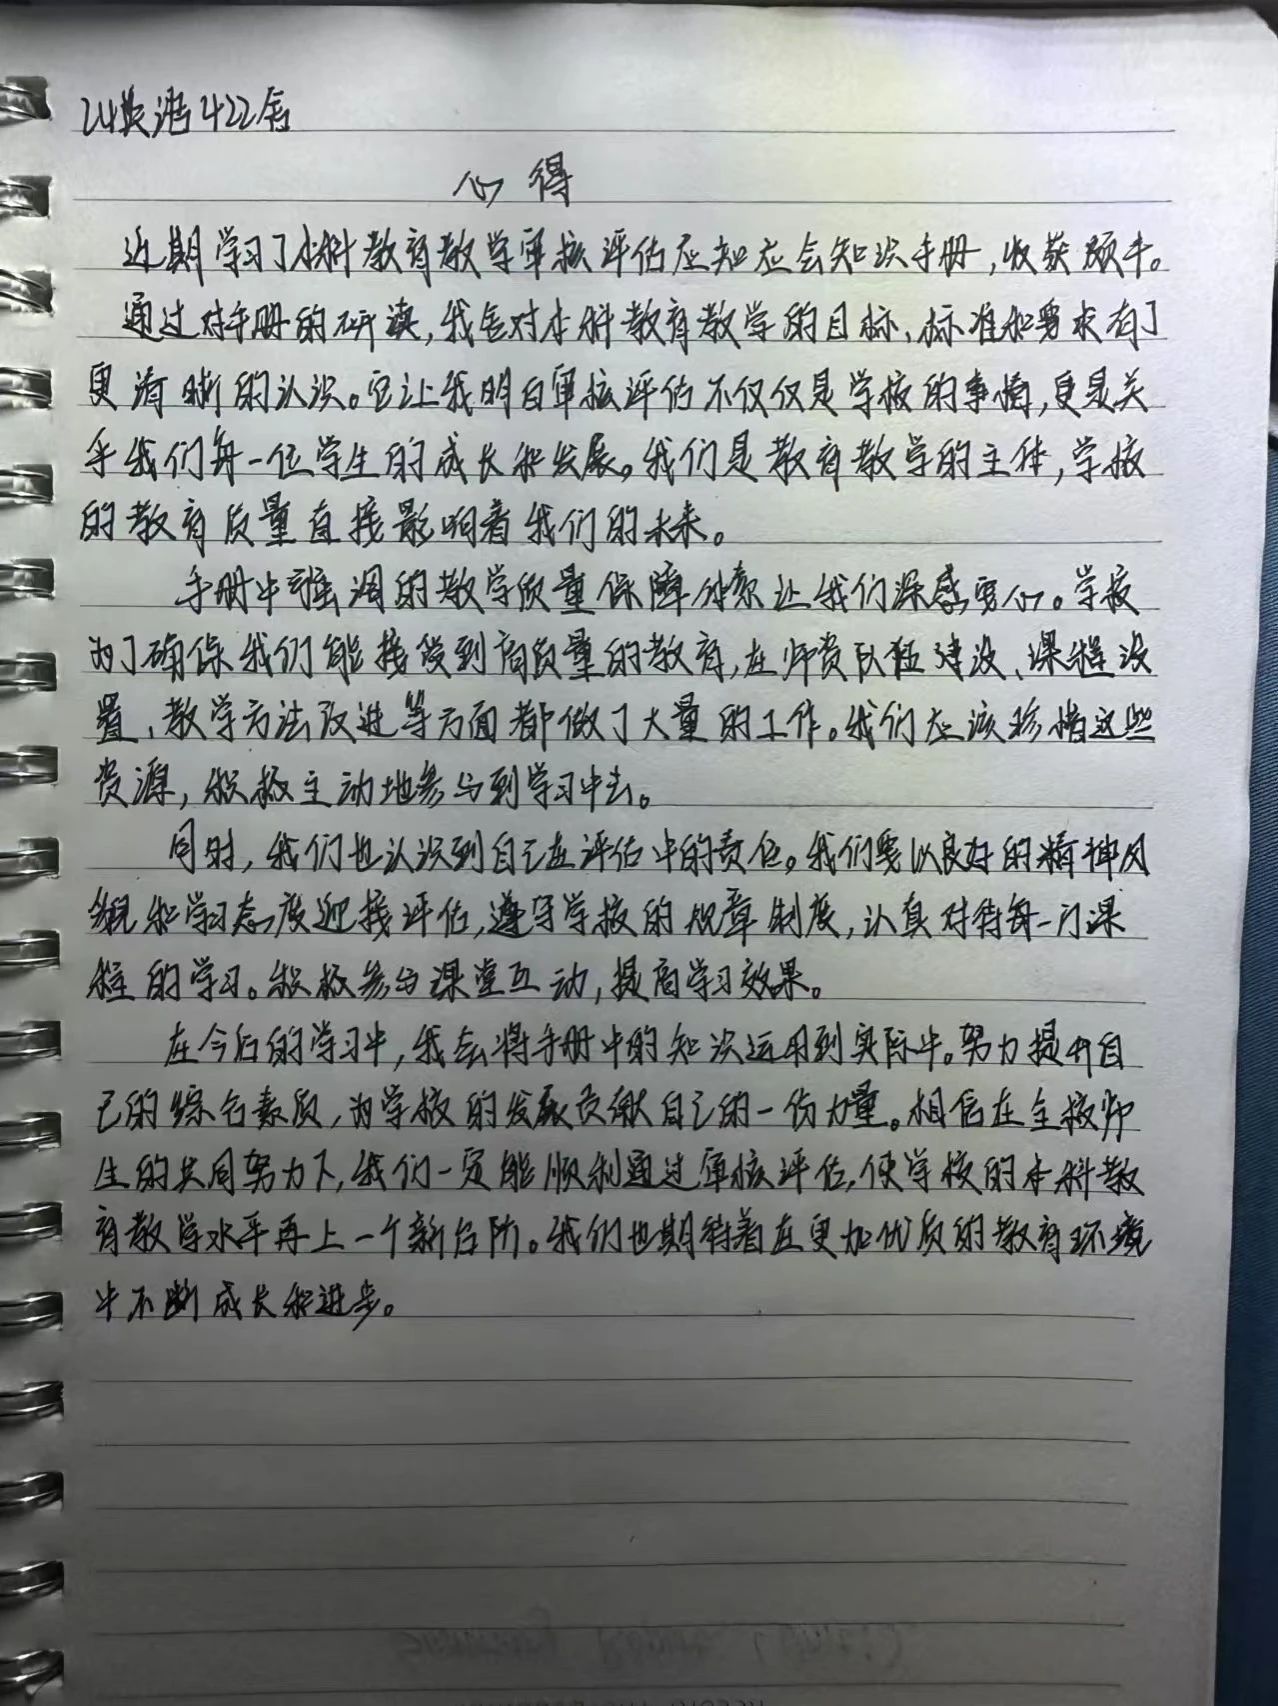 24英语422舍
心得
近期学习了本科教育教学审核评估应知应会知识手册,收获颇丰。
通过对手册的研读,我舍对本科教育教学的目标、标准和要求有了
更清晰的认识。它让我明白审核评估不仅仅是学校的事情,更是关
乎我们每一位学生的成长和发展。我们是教育教学的主体,学校
的教育质量直接影响着我们的未来。
手册中强调的教学质量保障体系让我们深感安心。学校
为了确保我们能接受到高质量的教育,在师资队伍建设、课程设
置、教学方法改进等方面都做了大量的工作。我们应该珍惜这些
资源,积极主动地参与到学习中去。
同时,我们也认识到自己在评估中的责任。我们要以良好的精神风
貌和学习态度迎接评估,遵守学校的规章制度,认真对待每一门课
程的学习。积极参与课堂互动,提高学习效果。
在今后的学习中,我会将手册中的知识运用到实际中。努力提升自
己的综合素质,为学校的发展贡献自己的一份力量。相信在全校师
生的共同努力下,我们一定能顺利通过审核评估,使学校的本科教
育教学水平再上一个新台阶。我们也期待着在更加优质的教育环境
中不断成长和进步。